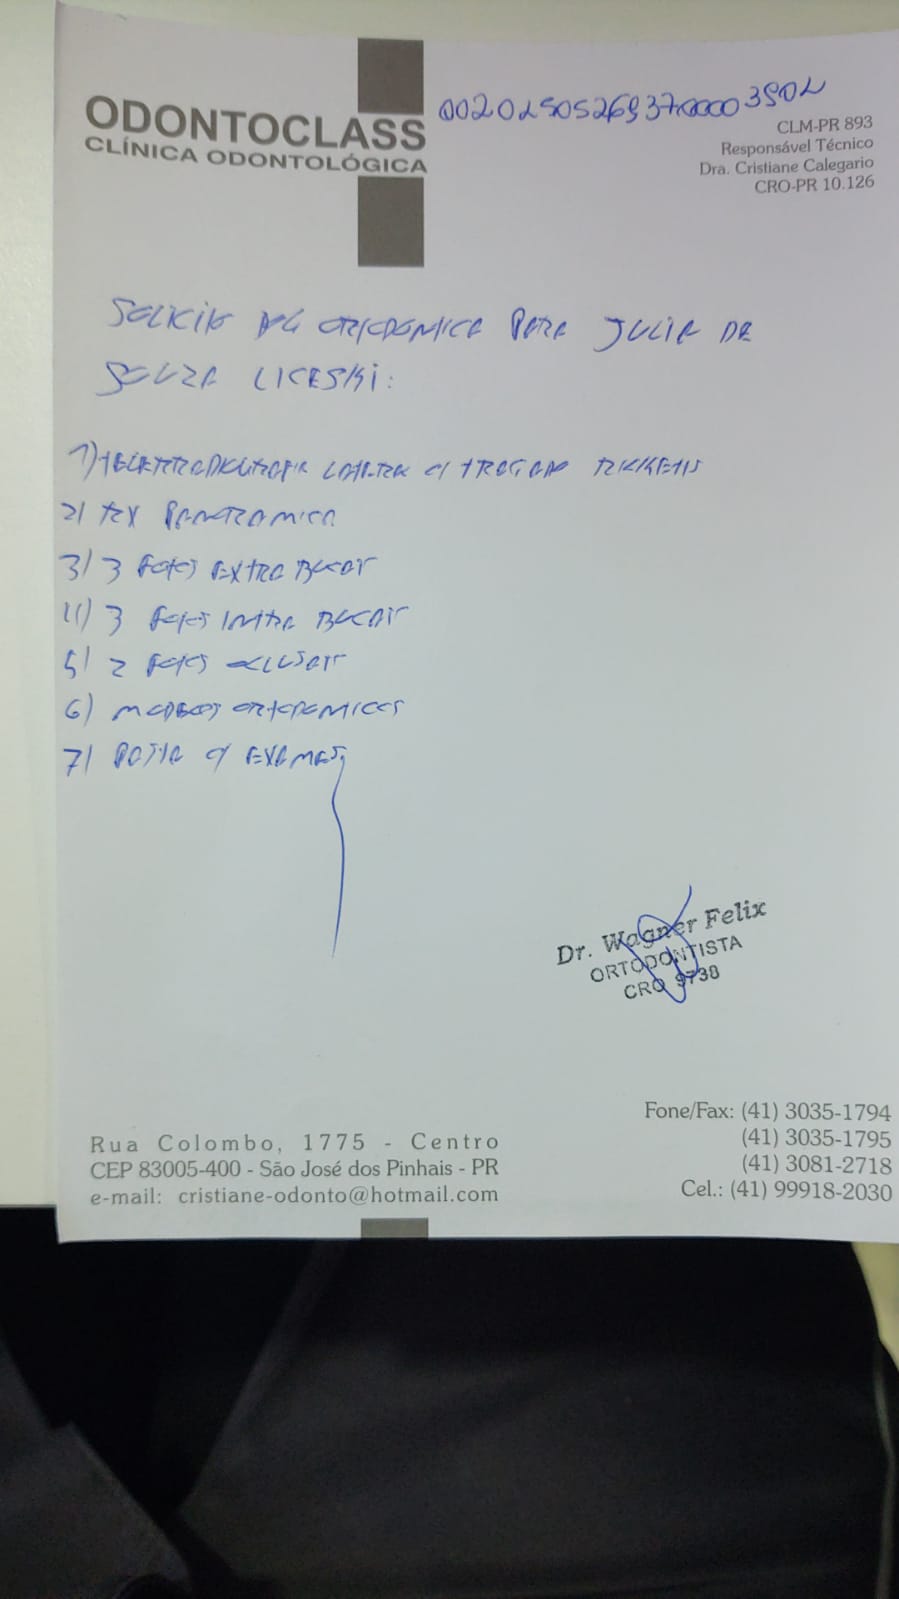 ODONTOCLASS
CLÍNICA ODONTOLÓGICA
CLM-PR 893
Responsável Técnico
Dra. Cristiane Calegario
CRO-PR 10.126
SOLICITO DOC ORTODONTICA PARA JULIA DE
SOUZA LICESKI:
1) TELERRADIOGRAFIA LATERAL C/ TRAÇADO RICKETTS
2) RX PANORAMICA
3) 3 FOTOS EXTRA BUCAIS
4) 3 FOTOS INTRA BUCAIS
5) 2 FOTOS OCLUSAIS
6) MODELOS ORTODONTICOS
7) PASTA C/ EXAMES
Dr. Wagner Felix
ORTODONTISTA
CRO 9738
Rua Colombo, 1775 - Centro
CEP 83005-400 - São José dos Pinhais - PR
e-mail: cristiane-odonto@hotmail.com
Fone/Fax: (41) 3035-1794
(41) 3035-1795
(41) 3081-2718
Cel.: (41) 99918-2030